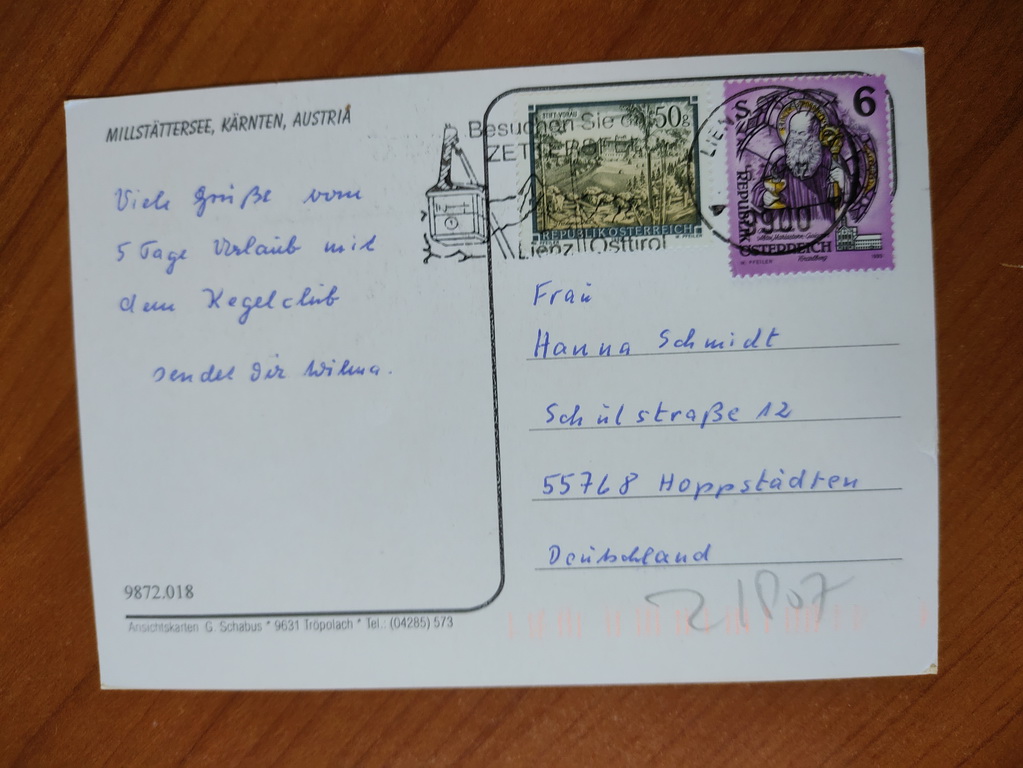 MILLSTÄTTERSEE, KÄRNTEN, AUSTRIA
Viele Grüße vom
5 Tage Urlaub mit
dem Kegelclub
sendet Dir Wilma.
9872.018
Ansichtskarten G. Schabus * 9631 Tröpolach * Tel.: (04285) 573
Besuchen Sie
Lienz Osttirol
STIFT VORAU
50g
REPUBLIK ÖSTERREICH
W. PFEILER
LIENZ
S 6
REPUBLIK
ÖSTERREICH
W. PFEILER
9900
Frau
Hanna Schmidt
Schulstraße 12
55768 Hoppstädten
Deutschland